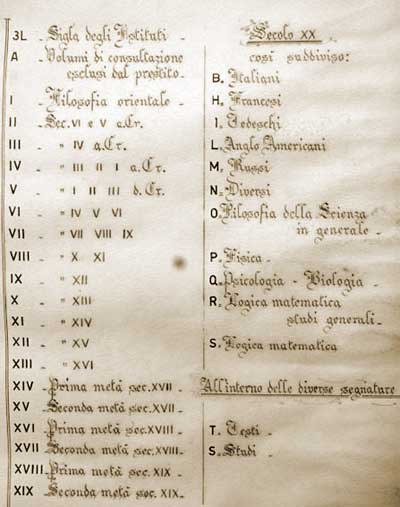 3L - Sigla degli Istituti -
A - Volumi di consultazione
esclusi dal prestito -
I - Filosofia orientale -
II - Sec. VI e V a.Cr.
III - " IV a.Cr.
IV - " III II I a.Cr.
V - " I II III d.Cr.
VI - " IV V VI
VII - " VII VIII IX
VIII - " X XI
IX - " XII
X - " XIII
XI - " XIV
XII - " XV
XIII - " XVI
XIV - Prima metà sec. XVII -
XV - Seconda metà sec. XVII -
XVI - Prima metà sec. XVIII -
XVII - Seconda metà sec. XVIII -
XVIII - Prima metà sec. XIX -
XIX - Seconda metà sec. XIX -
Secolo XX
così suddiviso:
B. Italiani
H. Francesi
I. Tedeschi
L. Anglo Americani
M. Russi
N. Diversi
O. Filosofia della Scienza
in generale -
P. Fisica -
Q. Psicologia - Biologia -
R. Logica matematica
studi generali -
S. Logica matematica
All'interno delle diverse segnature
T. Testi -
S. Studi -